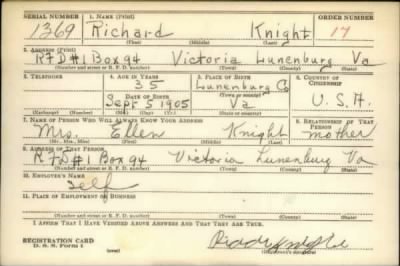 SERIAL NUMBER 1. NAME (Print) ORDER NUMBER
1369 Richard Knight 17
(First) (Middle) (Last)
2. ADDRESS (Print)
RFD#1 Box 94 Victoria Lunenburg Va
(Number and street or R. F. D. number) (Town) (County) (State)
3. TELEPHONE 4. AGE IN YEARS 5. PLACE OF BIRTH 6. COUNTRY OF CITIZENSHIP
35 Lunenburg Co
DATE OF BIRTH (Town or county)
Sept 5 1905 Va U.S.A.
(Exchange) (Number) (Mo.) (Day) (Yr.) (State or country)
7. NAME OF PERSON WHO WILL ALWAYS KNOW YOUR ADDRESS 8. RELATIONSHIP OF THAT PERSON
Mrs. Ellen Knight mother
(Mr., Mrs., Miss) (First) (Middle) (Last)
9. ADDRESS OF THAT PERSON
RFD#1 Box 94 Victoria Lunenburg Va
(Number and street or R. F. D. number) (Town) (County) (State)
10. EMPLOYER'S NAME
Self
11. PLACE OF EMPLOYMENT OR BUSINESS
(Number and street or R. F. D. number) (Town) (County) (State)
I AFFIRM THAT I HAVE VERIFIED ABOVE ANSWERS AND THAT THEY ARE TRUE.
REGISTRATION CARD
D. S. S. Form 1 (Registrant's signature)